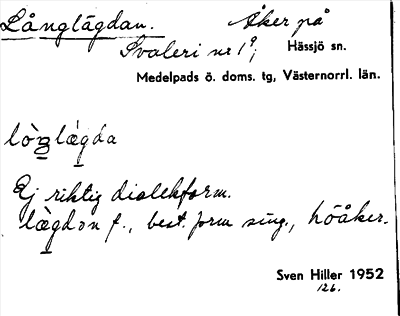 Långlägdan. Åker på
Svaleri nr 1⁹; Hässjö sn.
Medelpads ö. doms. tg, Västernorrl. län.
lòŋlægda
Ej riktig dialektform.
lægdon f., best. form sing., höåker.
Sven Hiller 1952
126.